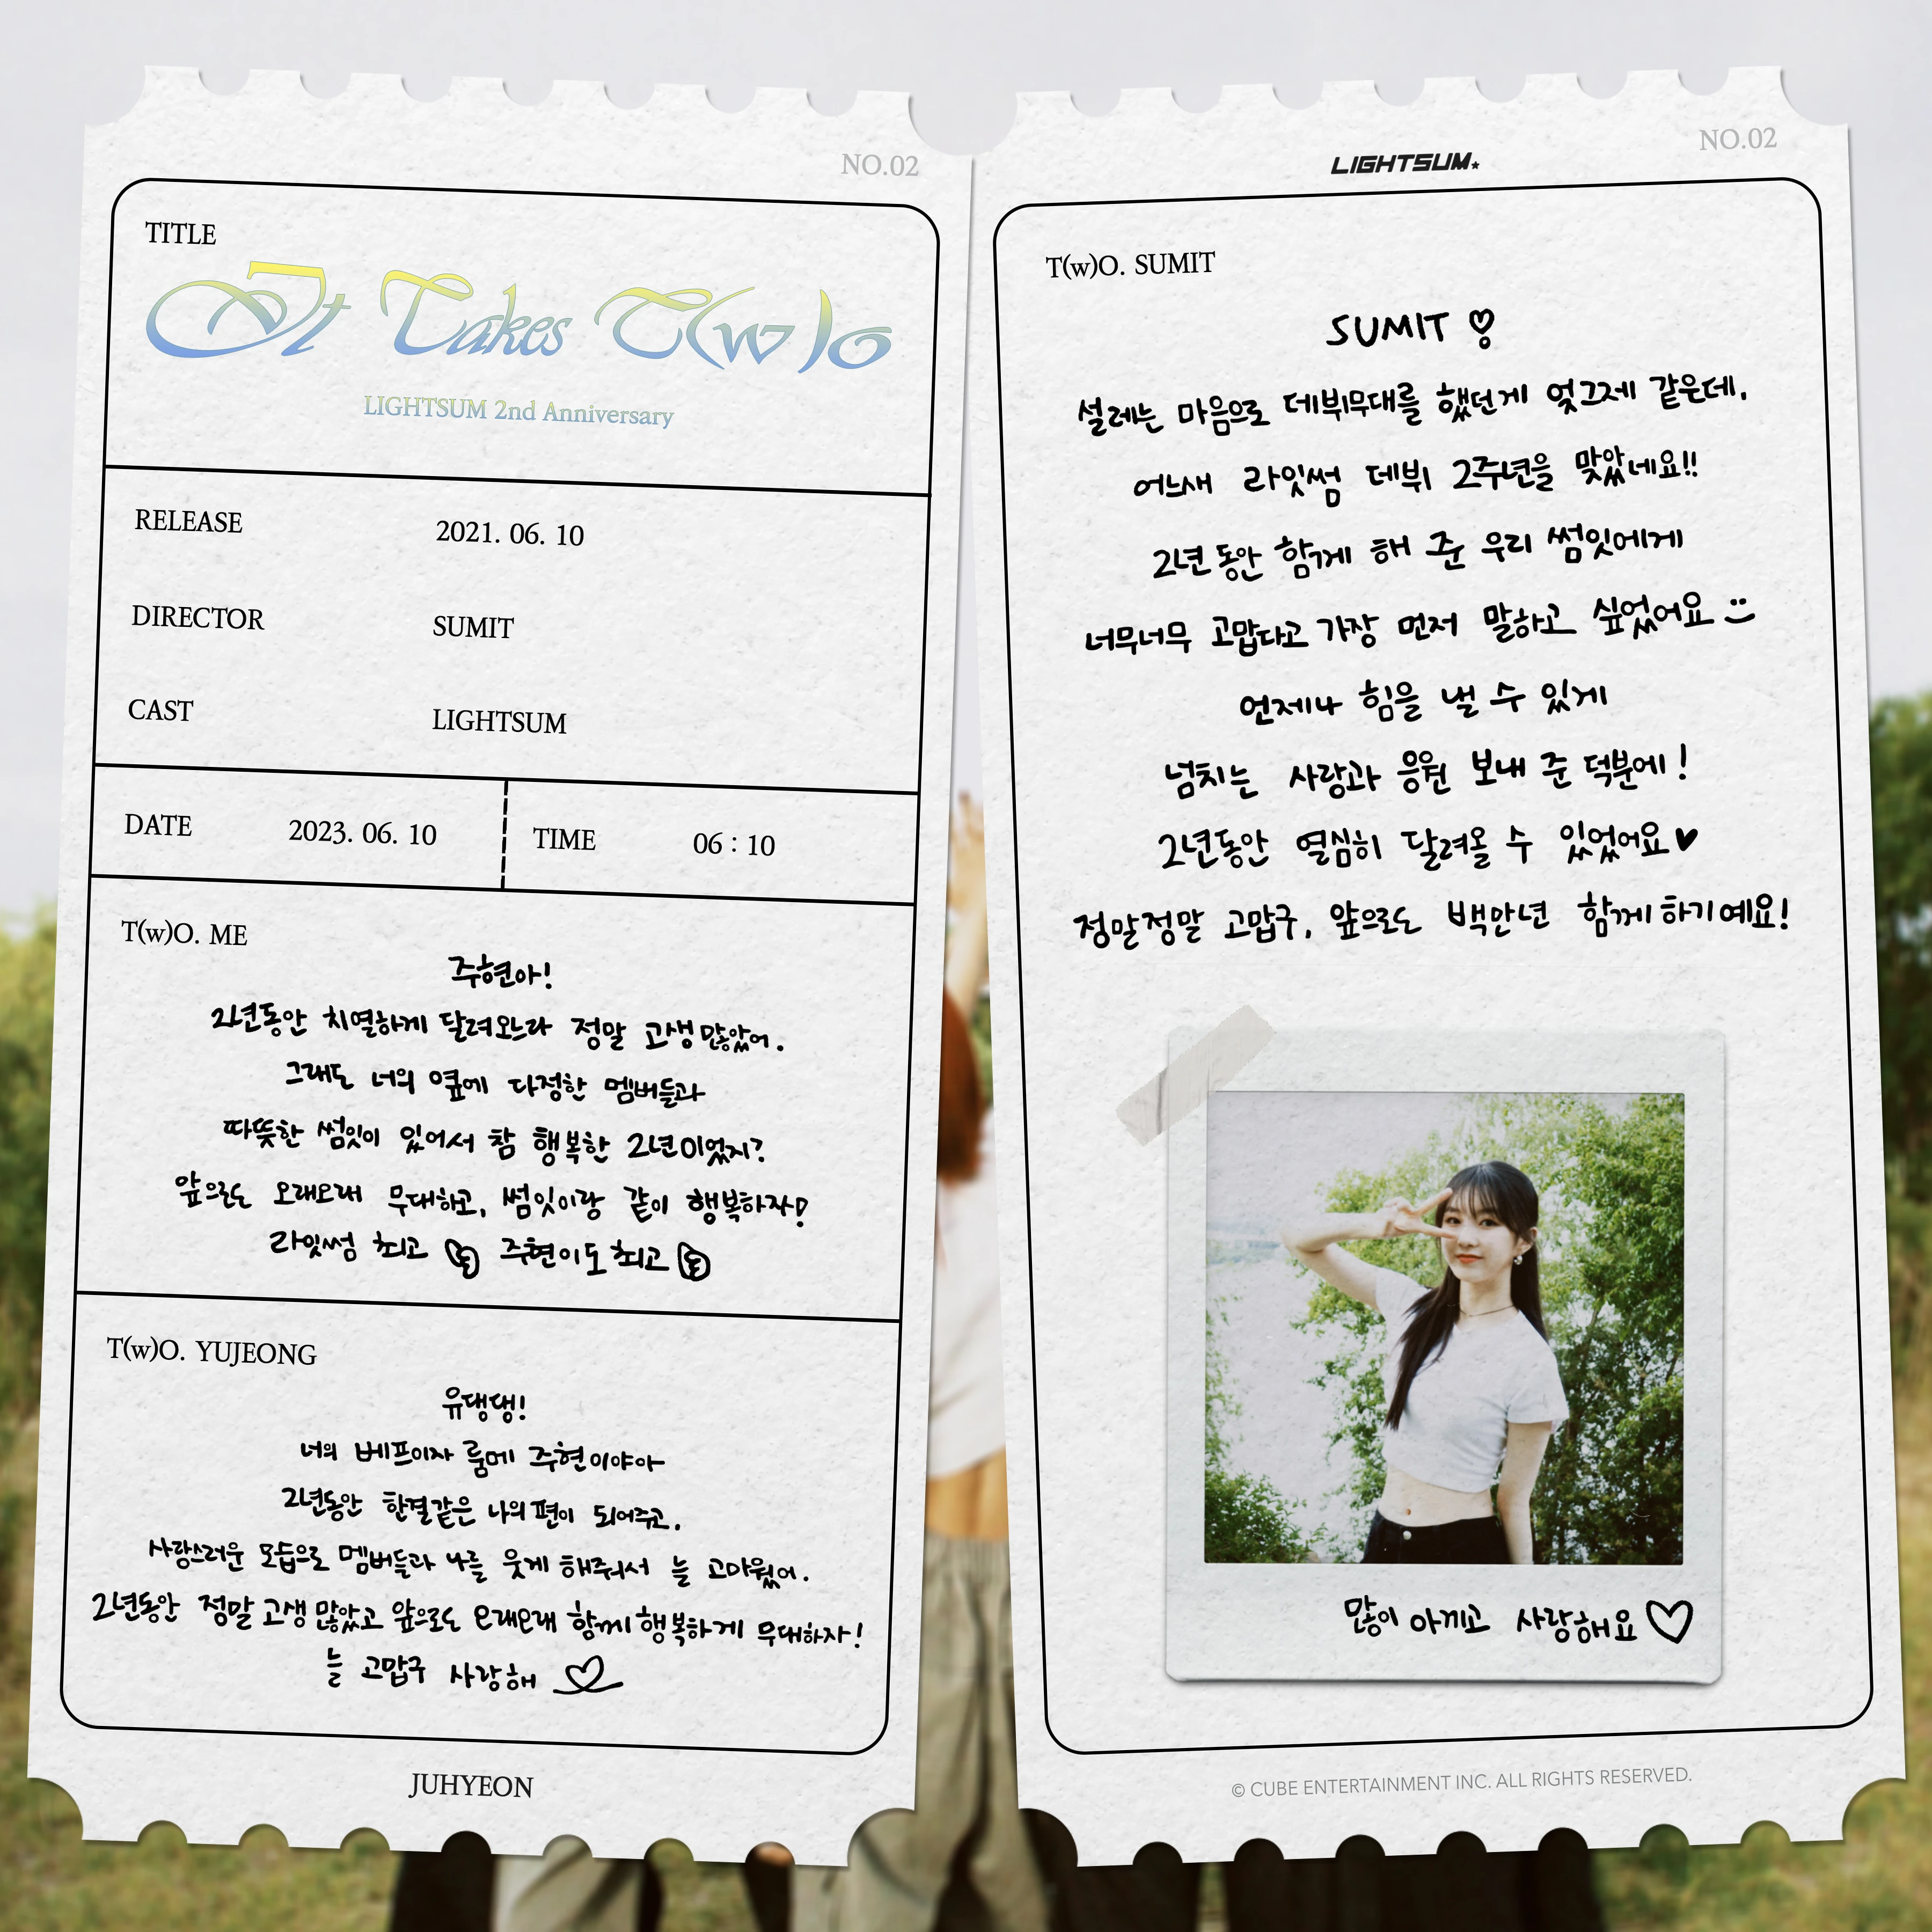 NO.02
TITLE
It Takes T(w)o
LIGHTSUM 2nd Anniversary
RELEASE 2021. 06. 10
DIRECTOR SUMIT
CAST LIGHTSUM
DATE 2023. 06. 10 TIME 06 : 10
T(w)O. ME
주현아!
2년동안 치열하게 달려오느라 정말 고생 많았어.
그래도 너의 옆에 다정한 멤버들과
따뜻한 썸잇이 있어서 참 행복한 2년이었지?
앞으로도 오래오래 무대하고, 썸잇이랑 같이 행복하자!
라잇썸 최고 주현이도 최고
T(w)O. YUJEONG
유댕댕!
너의 베프이자 룸메 주현이야아
2년동안 한결같은 나의 편이 되어주고,
사랑스러운 모습으로 멤버들과 나를 웃게 해줘서 늘 고마웠어.
2년동안 정말 고생 많았고 앞으로도 오래오래 함께 행복하게 무대하자!
늘 고맙구 사랑해
JUHYEON
LIGHTSUM
NO.02
T(w)O. SUMIT
SUMIT
설레는 마음으로 데뷔무대를 했던게 엊그제 같은데,
어느새 라잇썸 데뷔 2주년을 맞았네요!!
2년 동안 함께 해 준 우리 썸잇에게
너무너무 고맙다고 가장 먼저 말하고 싶었어요
언제나 힘을 낼 수 있게
넘치는 사랑과 응원 보내 준 덕분에!
2년동안 열심히 달려올 수 있었어요
정말정말 고맙구, 앞으로도 백만년 함께하기예요!
많이 아끼고 사랑해요
© CUBE ENTERTAINMENT INC. ALL RIGHTS RESERVED.